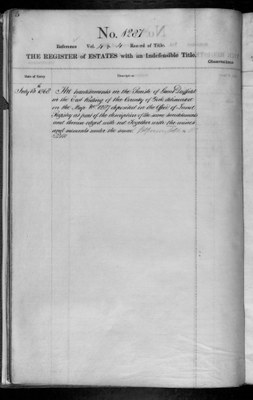 No. 1287
Reference Vol. Record of Title.
THE REGISTER of ESTATES with an Indefeasible Title.
Date of Entry
Description
Observations
July 13th 1868 The hereditaments in the Parish of Great Driffield
in the East Riding of the County of York delineated
on the Map No. 1287 deposited in the Office of Land
Registry as part of the description of the same hereditaments
and thereon edged with red Together with the mines
and minerals under the same